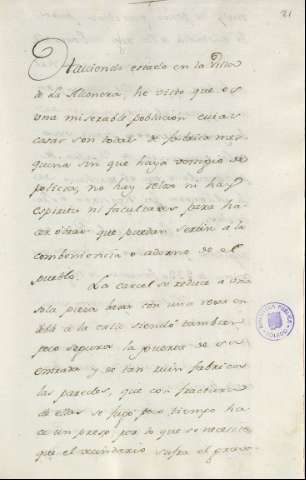 21
Haviendo estado en la Villa
de La Alconera, he visto que es
una miserable poblacion cuias
casas son todas de fabrica mez
quina sin que haya vestigio de
policia, no hay relox ni hay
espiritu ni facultades para ha
cer obras que puedan servir a la
combeniencia o adorno de el
pueblo.
La carcel se reduce a una
sola pieza baxa con una rexa en
a la calle siendo tambien
poco segura la puerta de su
entrada y de tan ruin fabrica
las paredes, que con fractura
de ellas se fugó, poco tiempo ha
ce un preso, por lo que se necesita
que el vecindario sufra el grava
BIBLIOTECA PUBLICA
TOLEDO